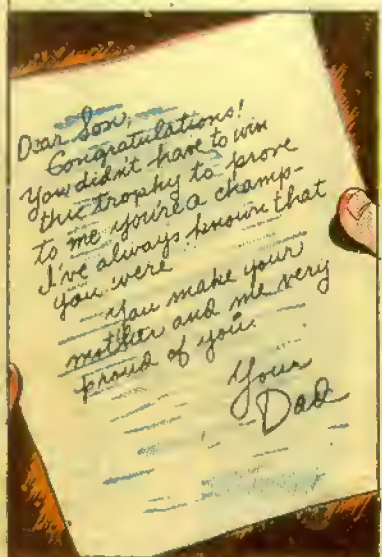 Dear Son,
Congratulations!
You didn't have to win
this trophy to prove
to me you're a champ-
I've always known that
you were...
You make your
mother and me very
proud of you.
Your
Dad